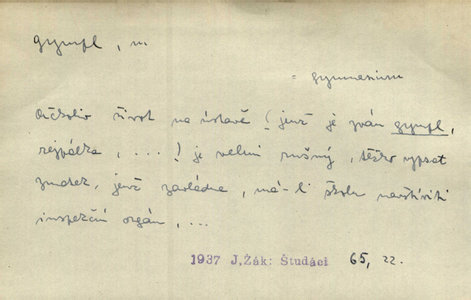 gympl, m
= gymnasium
Ačkoliv život na ústavě (jenž je zván gympl,
rejpálka, ...) je velmi rušný, těžko vypsat
zmatek, jenž zavládne, má-li školu navštíviti
inspekční orgán, ...
1937 J.Žák: Študáci 65, 22.